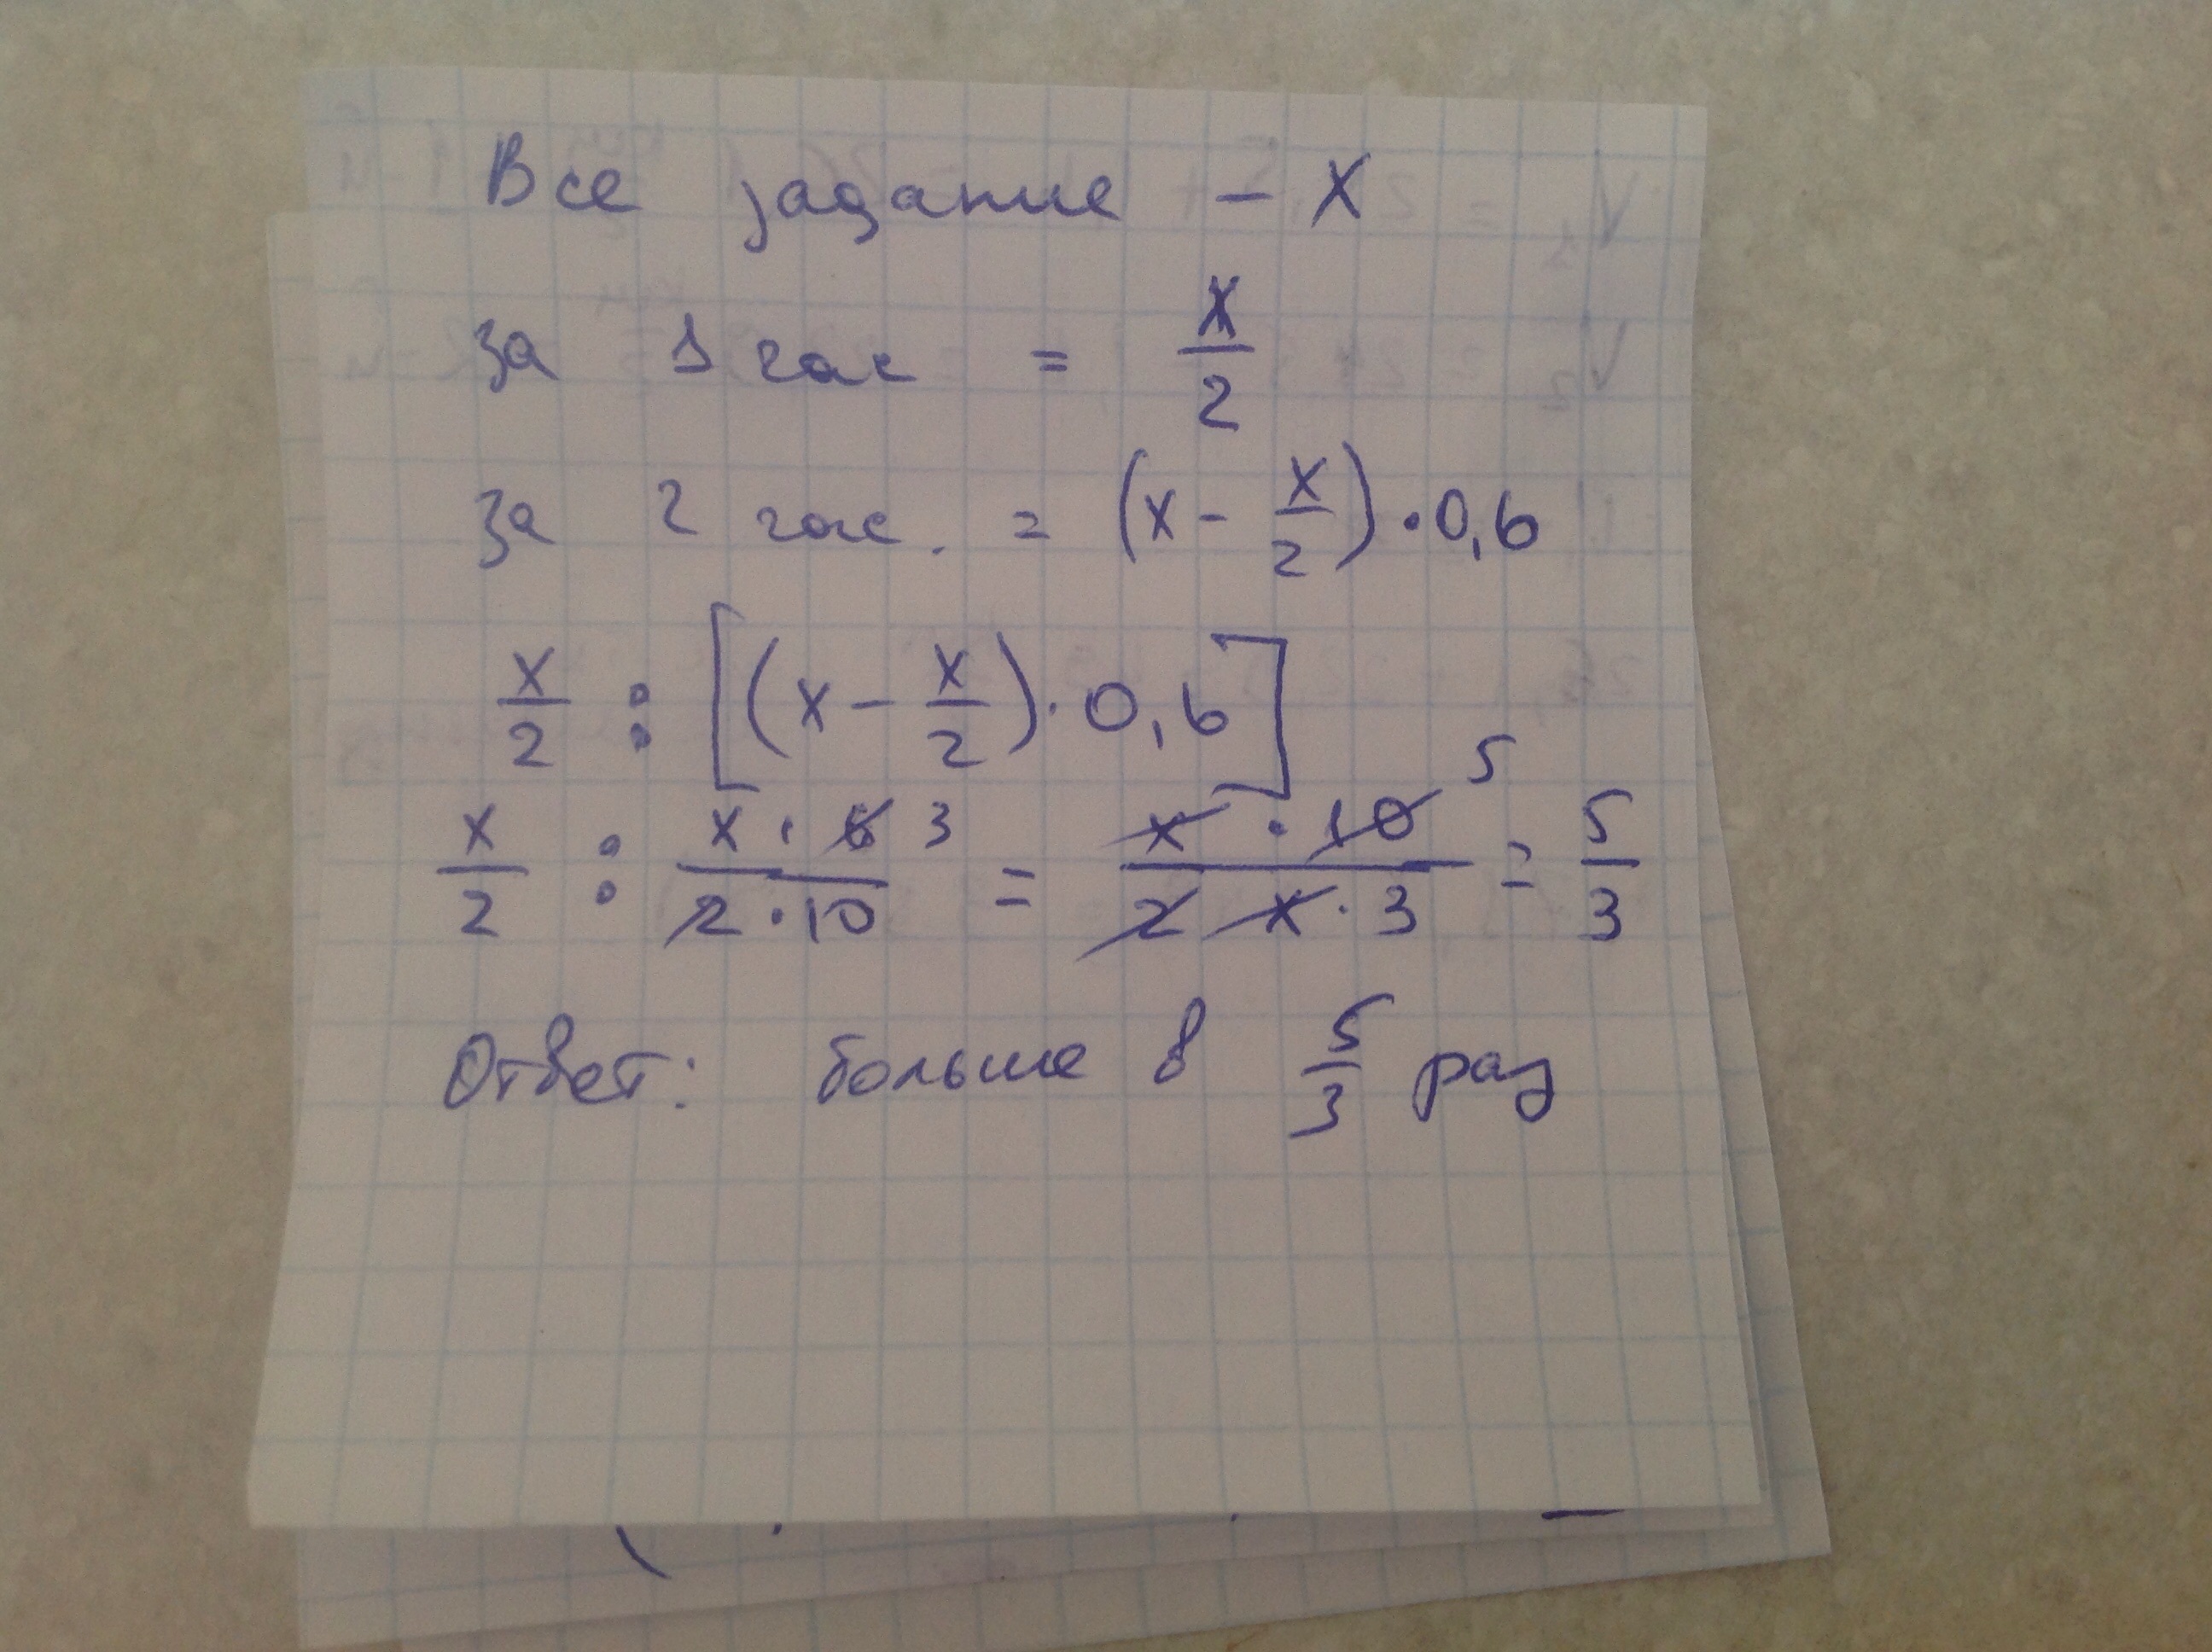 Все задание - X
за 1 час = X/2
за 2 час. = (x - x/2) · 0,6
x/2 : [(x - x/2) · 0,6]
x/2 : x · 6 3 / 2 · 10 = x · 10 5 / 2 x · 3 = 5/3
Ответ: больше в 5/3 раз